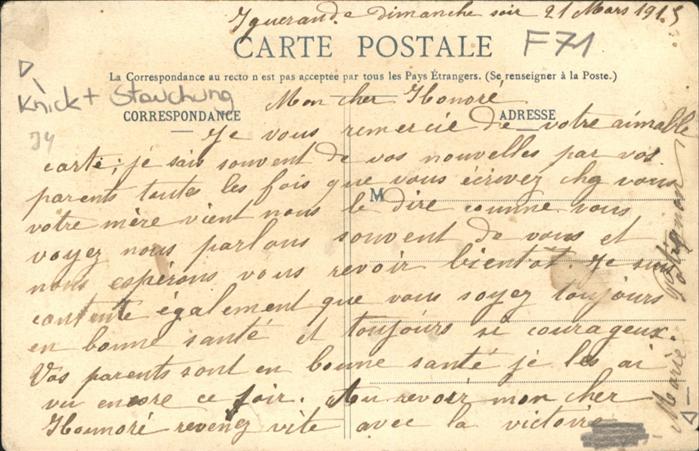 Iguerande dimanche soir 21 Mars 1915
CARTE POSTALE
F71
La Correspondance au recto n'est pas acceptée par tous les Pays Étrangers. (Se renseigner à la Poste.)
Knick + Stauchung
CORRESPONDANCE
ADRESSE
Mon cher Honoré
Je vous remercie de votre aimable
carte; je sais souvent de vos nouvelles par vos
parents toutes les fois que vous écrivez chez vous
M
votre mère vient nous le dire comme vous
voyez nous parlons souvent de vous et
nous espérons vous revoir bientôt. Je suis
contente également que vous soyez toujours
en bonne santé et toujours si courageux.
Vos parents sont en bonne santé je les ai
vu encore ce soir. Au revoir mon cher
Honnoré revenez vite avec la victoire
Marie